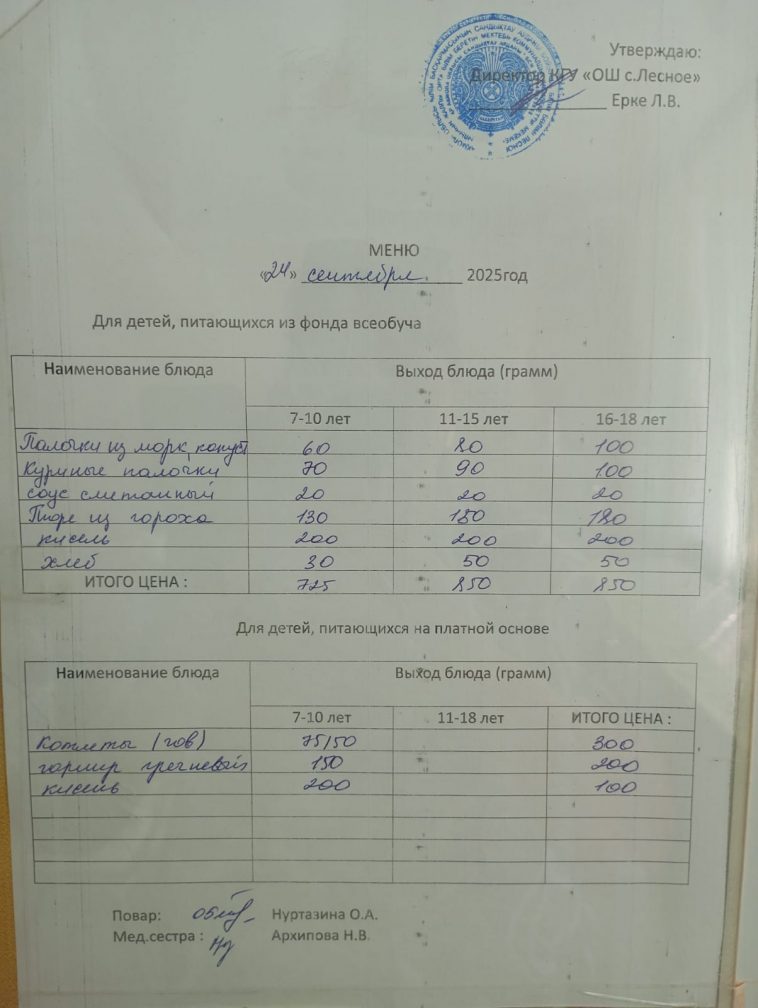 Утверждаю:
Директор КГУ «ОШ с.Лесное»
Ерке Л.В.
МЕНЮ
«24» сентября 2025год
Для детей, питающихся из фонда всеобуча
Наименование блюда Выход блюда (грамм)
7-10 лет 11-15 лет 16-18 лет
Палочки из морк, капуст 60 80 100
Куриные палочки 70 90 100
соус сметанный 20 20 20
Пюре из гороха 130 180 180
кисель 200 200 200
хлеб 30 50 50
ИТОГО ЦЕНА : 725 850 850
Для детей, питающихся на платной основе
Наименование блюда Выход блюда (грамм)
7-10 лет 11-18 лет ИТОГО ЦЕНА :
Котлеты (гов) 75/50 300
гарнир гречневый 150 200
кисель 200 100
Повар: Нуртазина О.А.
Мед.сестра : Архипова Н.В.